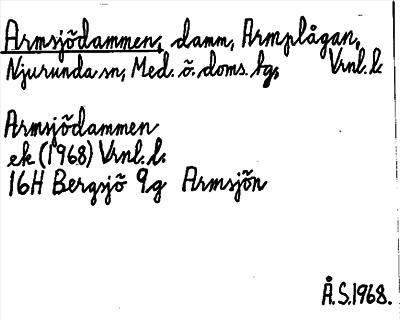 Armsjödammen, damm, Armplågan,
Njurunda sn, Med. ö. doms. bg, Vrnl. l.
Armsjödammen
ek (1968) Vrnl. l.
16H Bergsjö 9g Armsjön
Å.S.1968.